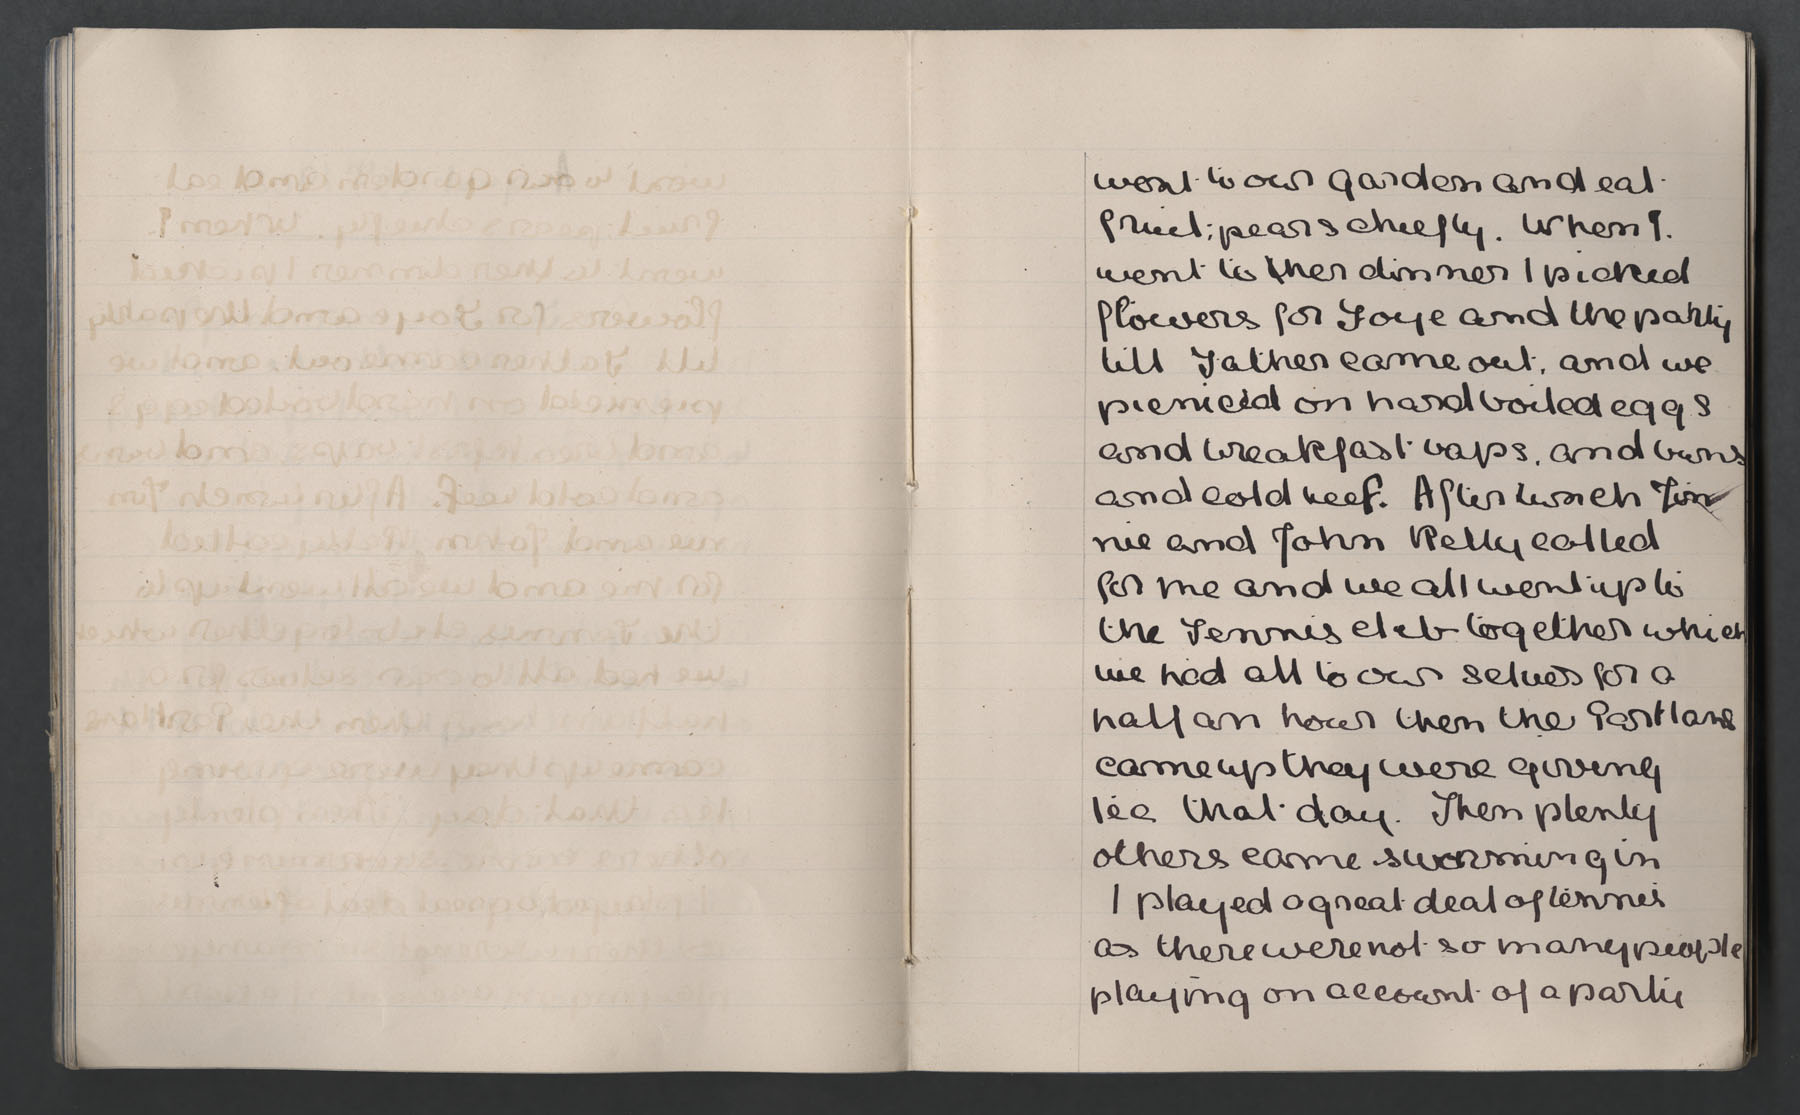 went to our garden and eat
fruit; pears chiefly. When I.
went to ther dinner I picked
flowers for Joye and the party
till Father came out, and we
picnicid on hard boiled eggs
and breakfast baps, and buns
and cold beef. After lunch Jin
nie and John Kelly called
for me and we all went up to
the Tennis club together which
we had all to our selves for a
half an hour then the Partlans
came up they were giving
tea that day. Then plenty
others came swarming in
I played a great deal of tennis
as there were not so many people
playing on account of a partie